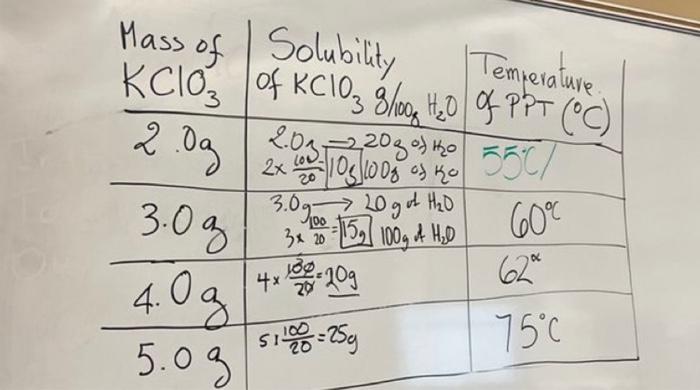 Mass of
KClO₃
Solubility
of KClO₃ g/100g H₂O
Temperature
of PPT (°C)
2.0g
2.0g → 20g of H₂O
2x 100/20 10g 100g of H₂O
55°C/
3.0g
3.0g → 20g of H₂O
3x 100/20 = 15g 100g of H₂O
60°C
4.0g
4x 100/20 = 20g
62°C
5.0g
5x 100/20 = 25g
75°C